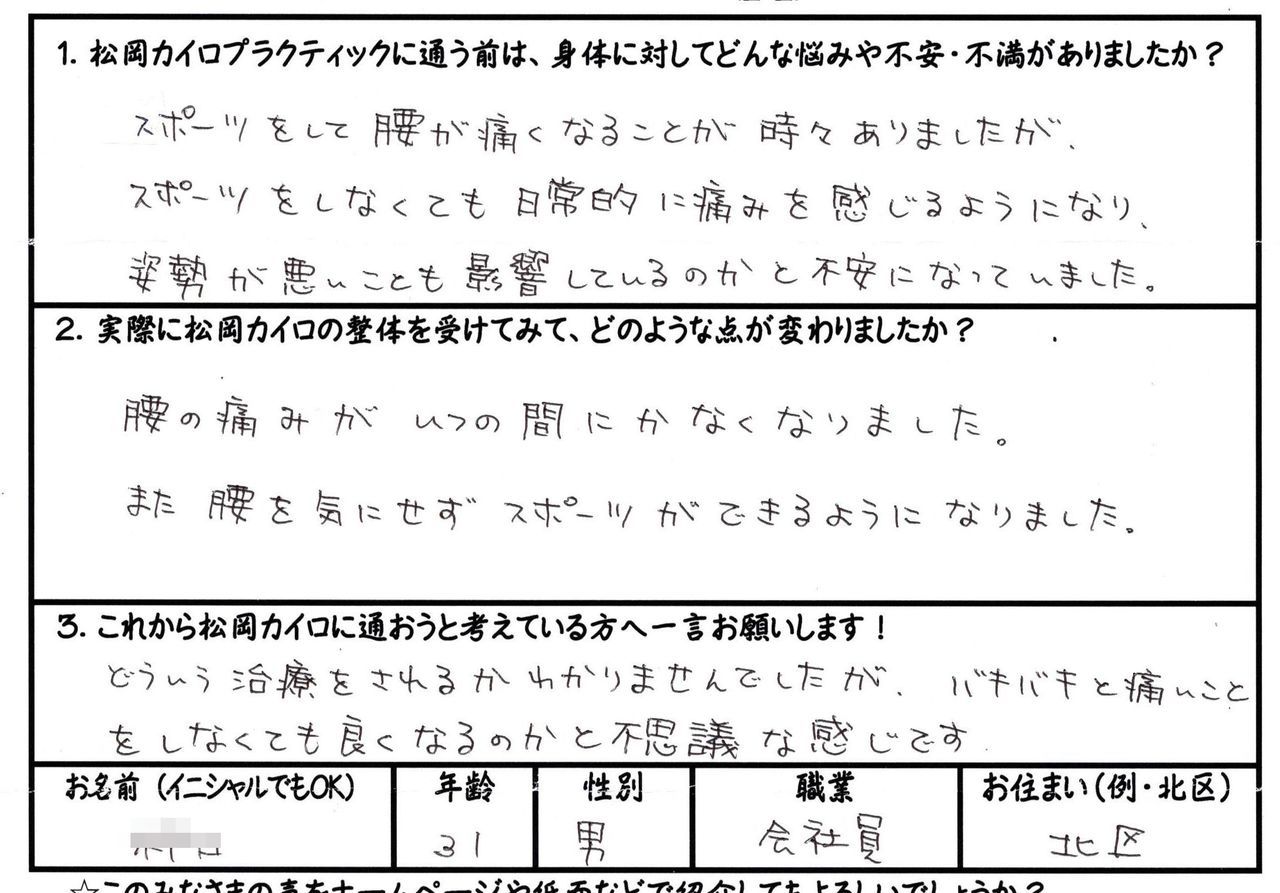 1. 松岡カイロプラクティックに通う前は、身体に対してどんな悩みや不安・不満がありましたか？
スポーツをして腰が痛くなることが時々ありましたが、
スポーツをしなくても日常的に痛みを感じるようになり、
姿勢が悪いことも影響しているのかと不安になっていました。
2. 実際に松岡カイロの整体を受けてみて、どのような点が変わりましたか？
腰の痛みがいつの間にかなくなりました。
また腰を気にせずスポーツができるようになりました。
3. これから松岡カイロに通おうと考えている方へ一言お願いします！
どういう治療をされるかわかりませんでしたが、バキバキと痛いこと
をしなくても良くなるのかと不思議な感じです.
お名前（イニシャルでもOK） 年齢 性別 職業 お住まい（例・北区）
31 男 会社員 北区
☆このみなさまの声をホームページや紙面などで紹介してもよろしいでしょうか？